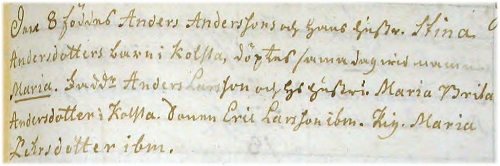 Den 8 föddes Anders Anderssons och hans hustr. Stina
Andersdotters barn i Kolsta, döptes samma dag vid namn
Maria. Fadd: Anders Larsson och hs hustru. Maria Brita
Andersdotter i Kolsta. Dräng Eric Larsson ibm. Pig. Maria
Pehrsdotter ibm.